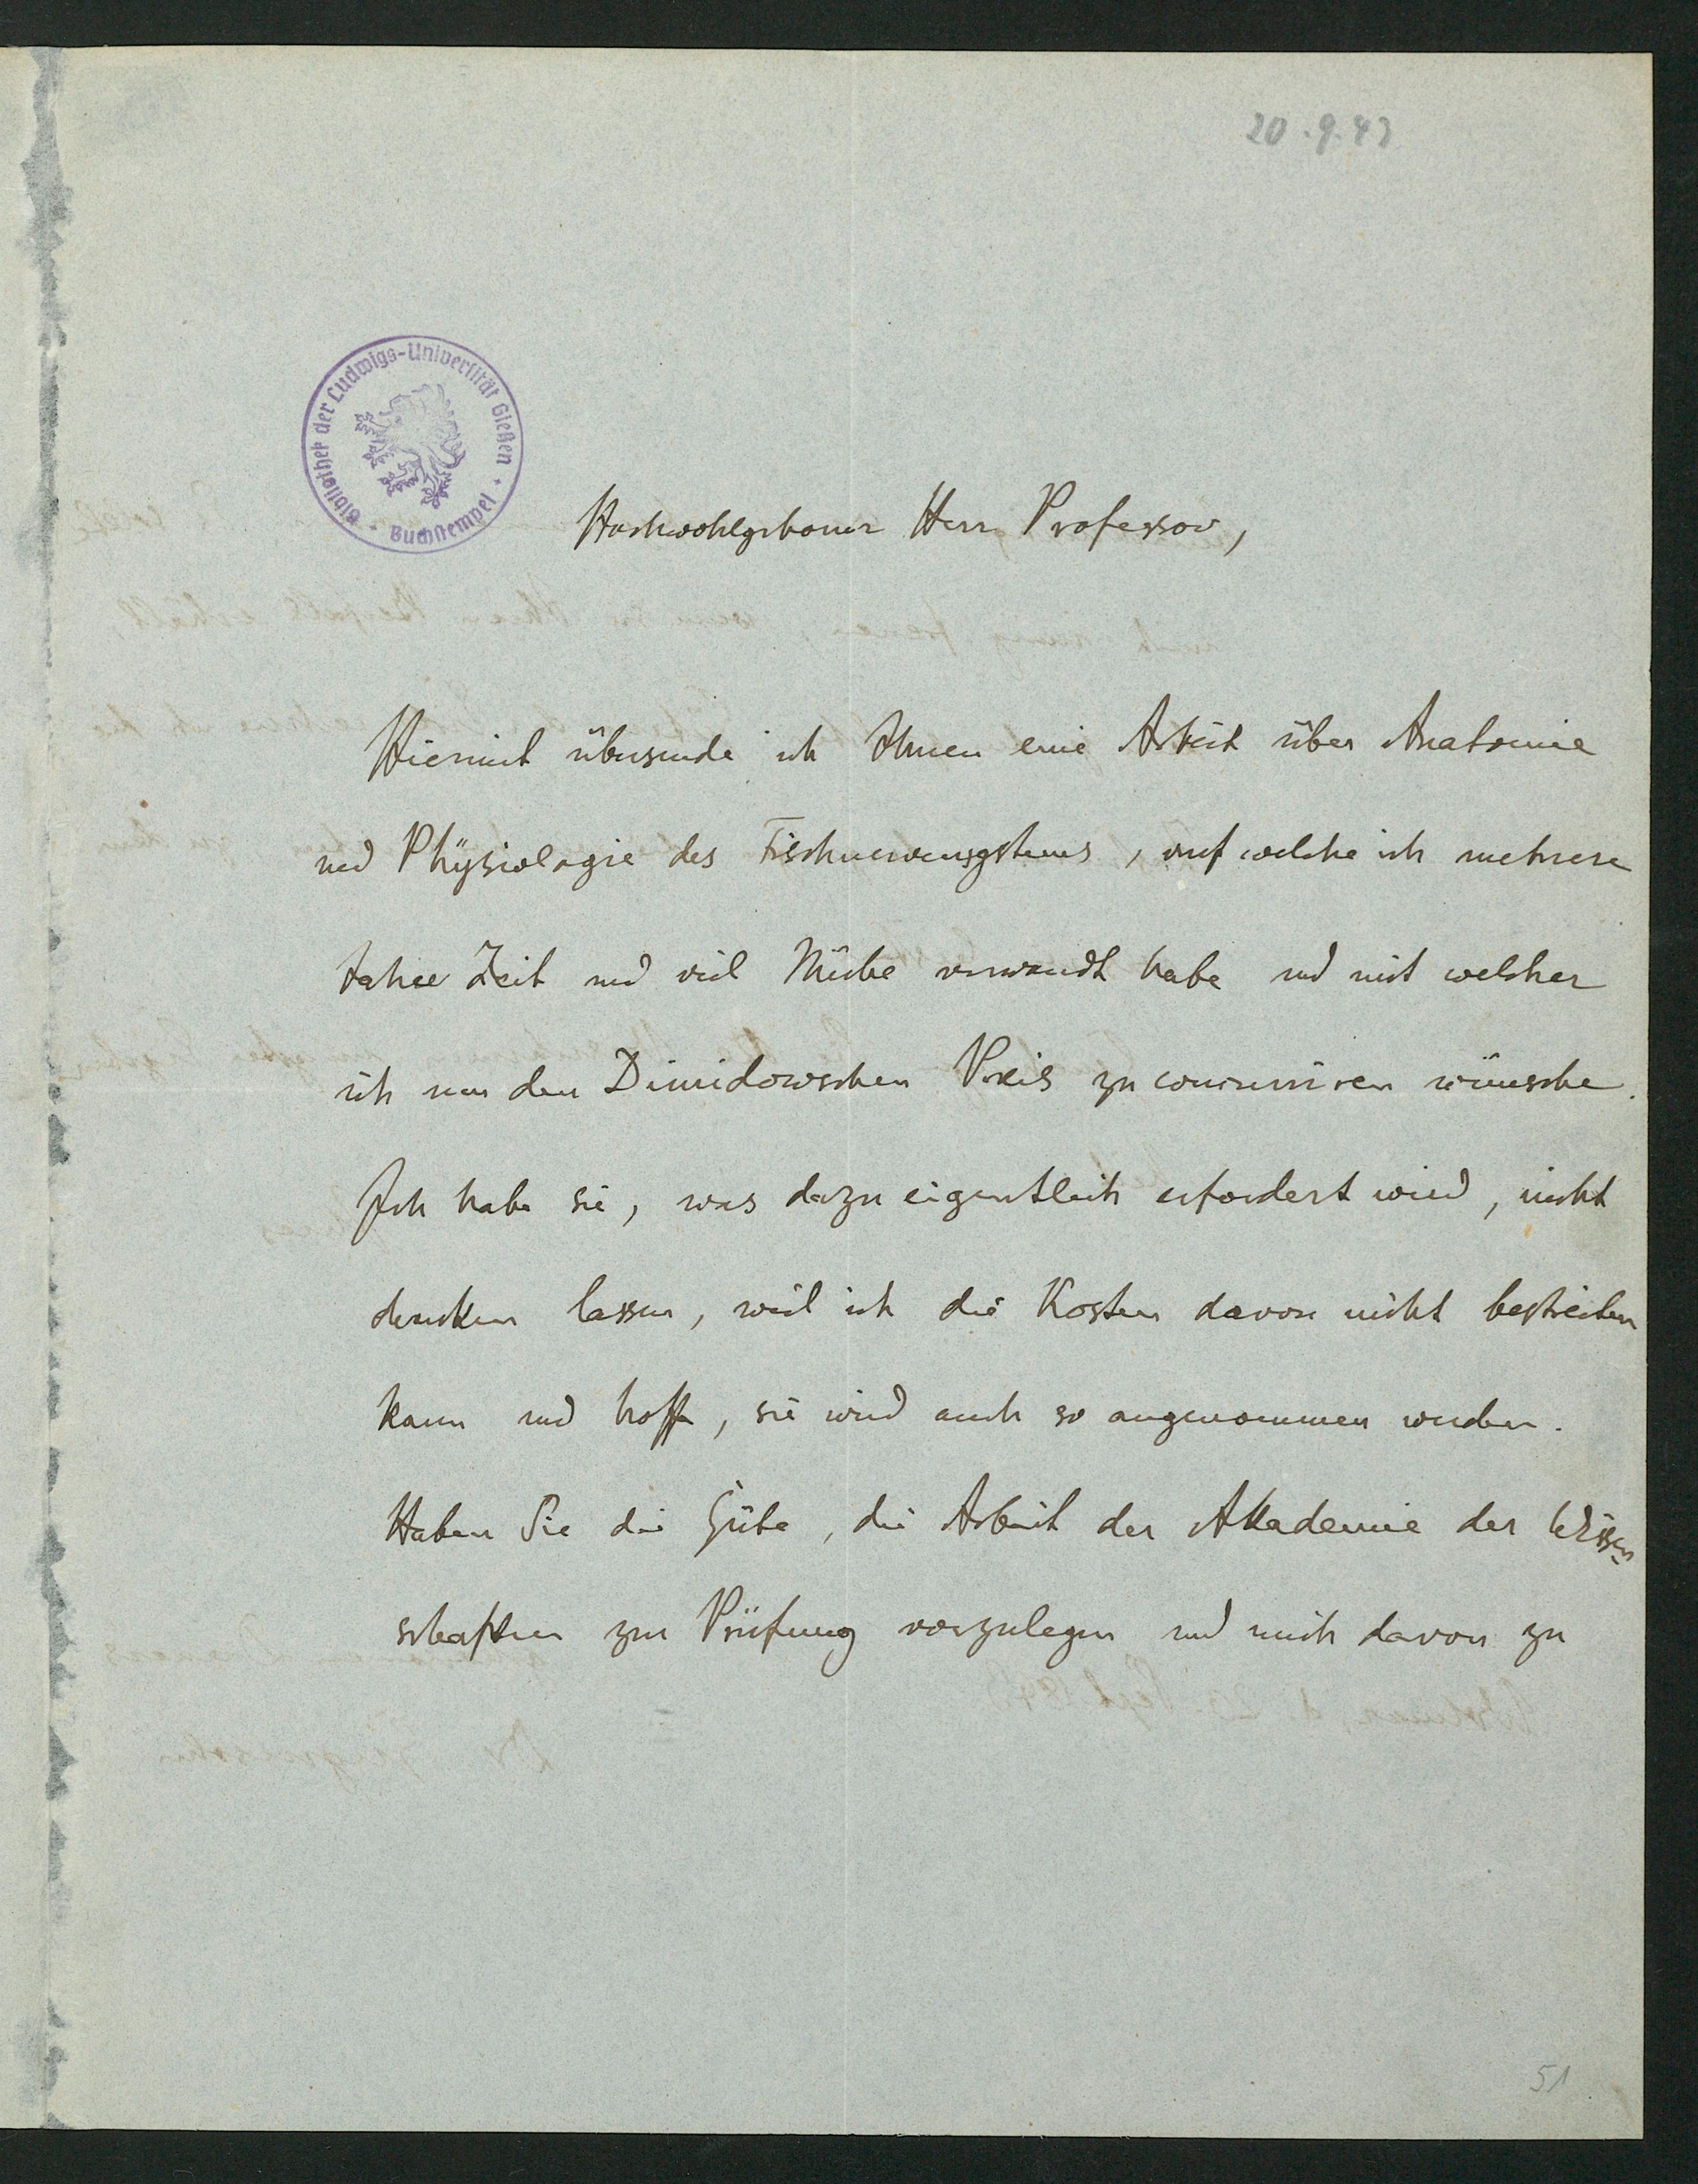 20.9.43
Bibliothek der Ludwigs-Universität Gießen · Buchstempel ·
Hochwohlgeborner Herr Professor,
Hiermit übersende ich Ihnen eine Arbeit über Anatomie
und Physiologie des Fischnervensystems, auf welche ich mehrere
Jahre Zeit und viel Mühe verwandt habe und mit welcher
ich um den Dimidowschen Preis zu concurriren wünsche.
Ich habe sie, was dazu eigentlich erfordert wird, nicht
drucken lassen, weil ich die Kosten davon nicht bestreiten
kann und hoffe, sie wird auch so angenommen werden.
Haben Sie die Güte, die Arbeit der Akademie der Wissen-
schaften zur Prüfung vorzulegen und mich davon zu
51